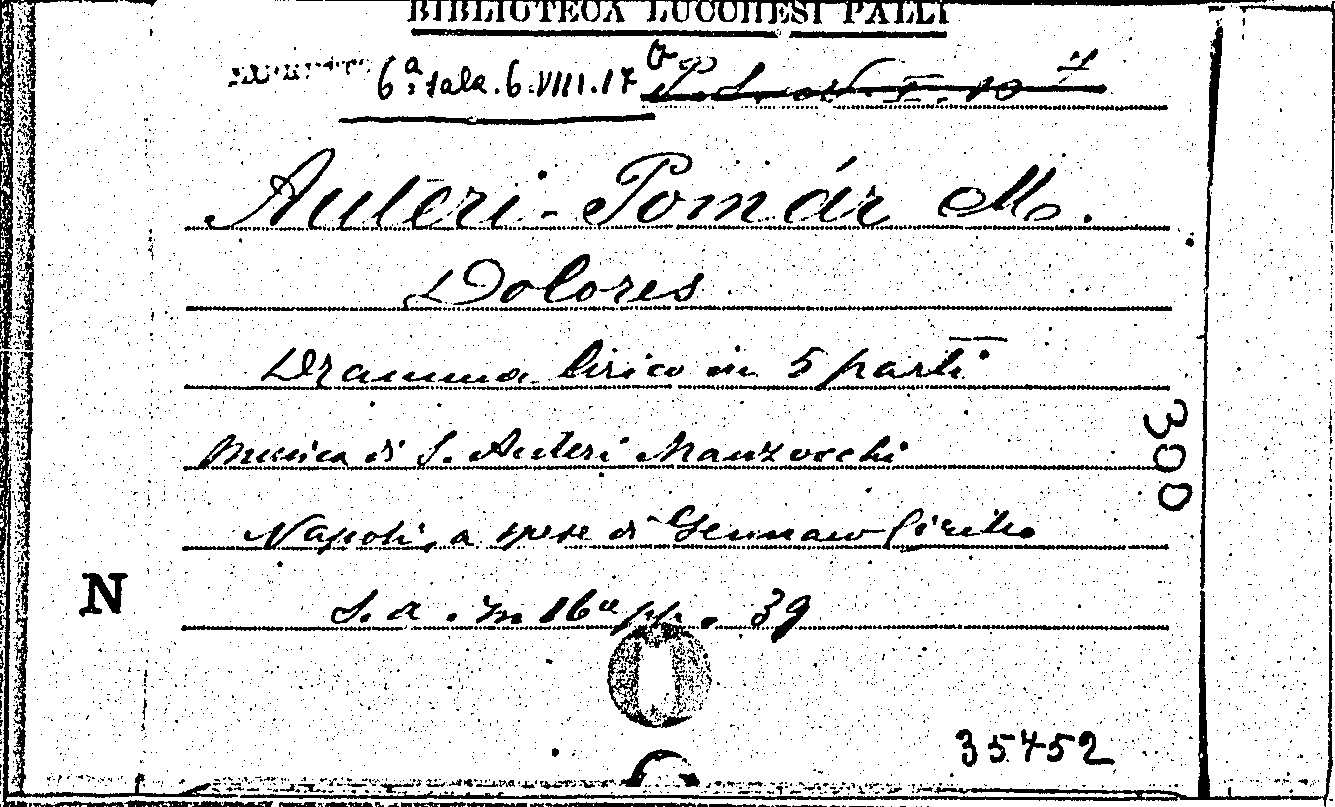 BIBLIOTECA LUCCHESI PALLI
6ª sala. 6. VIII. 17
Auteri-Pomár M.
Dolores
Dramma lirico in 5 parti
musica di S. Auteri Manzocchi
Napoli, a spese di Gennaro Cirillo
S. a. in 16º pp. 39
300
N
35452